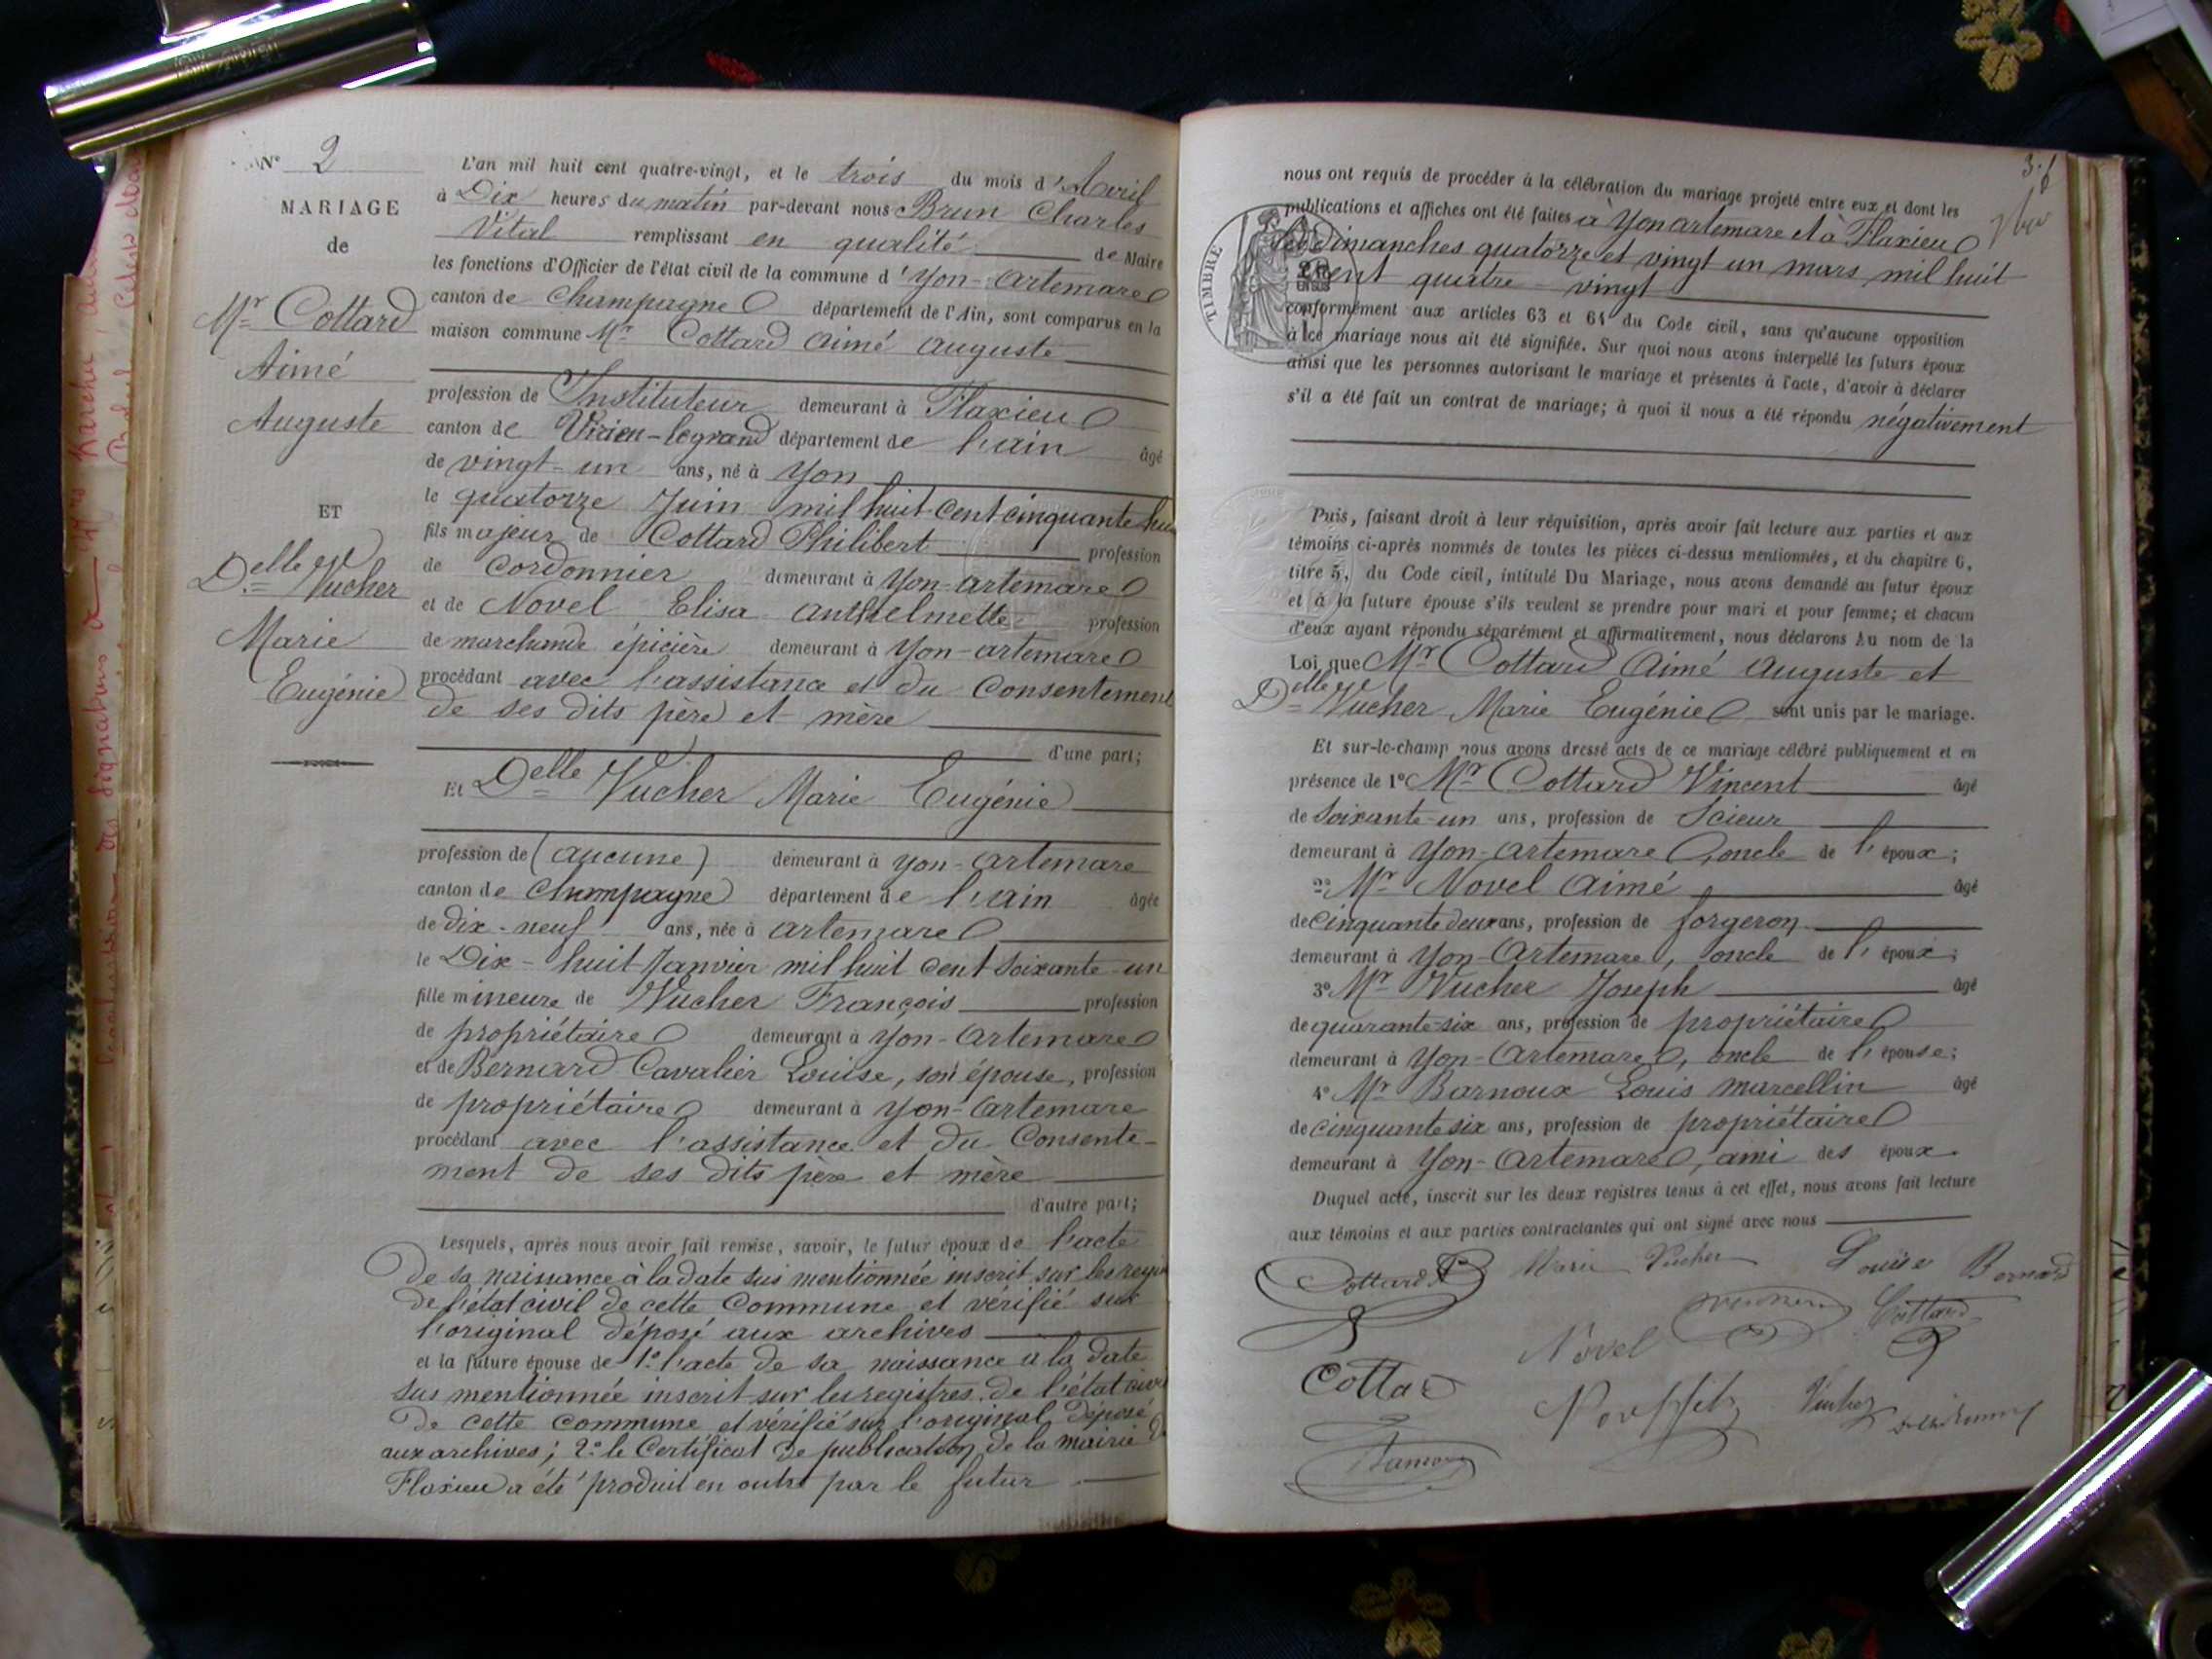 N° 2
MARIAGE
de
Mr Cottard
Aimé
Auguste
ET
Delle Vucher
Marie
Eugénie
L'an mil huit cent quatre-vingt, et le trois du mois d'Avril
à Dix heures du matin par-devant nous Brun Charles
Vital remplissant en qualité de Maire
les fonctions d'Officier de l'état civil de la commune d'Yon-Artemare
canton de Champagne département de l'Ain, sont comparus en la
maison commune Mr Cottard Aimé Auguste
profession de Instituteur demeurant à Flaxieu
canton de Virieu-legrand département de l'ain âgé
de vingt-un ans, né à Yon
le quatorze Juin mil huit cent cinquante hui
fils majeur de Cottard Philibert profession
de Cordonnier demeurant à Yon-Artemare
et de Novel Elisa Anthelmette profession
de marchande épicière demeurant à Yon-artemare
procédant avec l'assistance et du Consentement
de ses dits père et mère
d'une part;
Et Delle Vucher Marie Eugénie
profession de (aucune) demeurant à Yon-Artemare
canton de Champagne département de l'ain âgée
de dix-neuf ans, née à Artemare
le Dix-huit Janvier mil huit cent soixante-un
fille mineure de Vucher François profession
de propriétaire demeurant à Yon-Artemare
et de Bernard Cavalier Louise, son épouse, profession
de propriétaire demeurant à Yon-Artemare
procédant avec l'assistance et du Consente-
ment de ses dits père et mère
d'autre part;
Lesquels, après nous avoir fait remise, savoir, le futur époux de l'acte
De sa naissance à la date sus mentionnée inscrit sur les regis
de l'état civil de cette Commune et vérifié sur
l'original déposé aux archives
et la future épouse de 1° l'acte de sa naissance a la date
sus mentionnée inscrit sur les registres de l'état civi
de cette commune et vérifié sur l'original déposé
aux archives; 2° le Certificat de publication de la mairie de
Flaxieu a été produit en outre par le futur
3.
nous ont requis de procéder à la célébration du mariage projeté entre eux et dont les
publications et affiches ont été faites à Yon artemare et à Flaxieu
les dimanches quatorze et vingt-un mars mil huit
cent quatre-vingt
TIMBRE
EN SUS
conformément aux articles 63 et 64 du Code civil, sans qu'aucune opposition
à ce mariage nous ait été signifiée. Sur quoi nous avons interpellé les futurs époux
ainsi que les personnes autorisant le mariage et présentes à l'acte, d'avoir à déclarer
s'il a été fait un contrat de mariage; à quoi il nous a été répondu négativement
Puis, faisant droit à leur réquisition, après avoir fait lecture aux parties et aux
témoins ci-après nommés de toutes les pièces ci-dessus mentionnées, et du chapitre 6,
titre 5, du Code civil, intitulé Du Mariage, nous avons demandé au futur époux
et à la future épouse s'ils veulent se prendre pour mari et pour femme; et chacun
d'eux ayant répondu séparément et affirmativement, nous déclarons Au nom de la
Loi, que Mr Cottard Aimé Auguste et
Delle Vucher Marie Eugénie sont unis par le mariage.
Et sur-le-champ nous avons dressé acte de ce mariage célébré publiquement et en
présence de 1° Mr Cottard Vincent âgé
de soixante-un ans, profession de Scieur
demeurant à Yon-Artemare, oncle de l'époux;
2° Mr Novel Aimé âgé
de cinquante deux ans, profession de forgeron
demeurant à Yon-Artemare, oncle de l'époux;
3° Mr Vucher Joseph âgé
de quarante-six ans, profession de propriétaire
demeurant à Yon-Artemare, oncle de l'épouse;
4° Mr Barnoux Louis Marcellin âgé
de cinquante six ans, profession de propriétaire
demeurant à Yon-Artemare, ami des époux
Duquel acte, inscrit sur les deux registres tenus à cet effet, nous avons fait lecture
aux témoins et aux parties contractantes qui ont signé avec nous
Cottard Marie Vucher Louise Bernard
Novel Cottard
Cottar Vucher